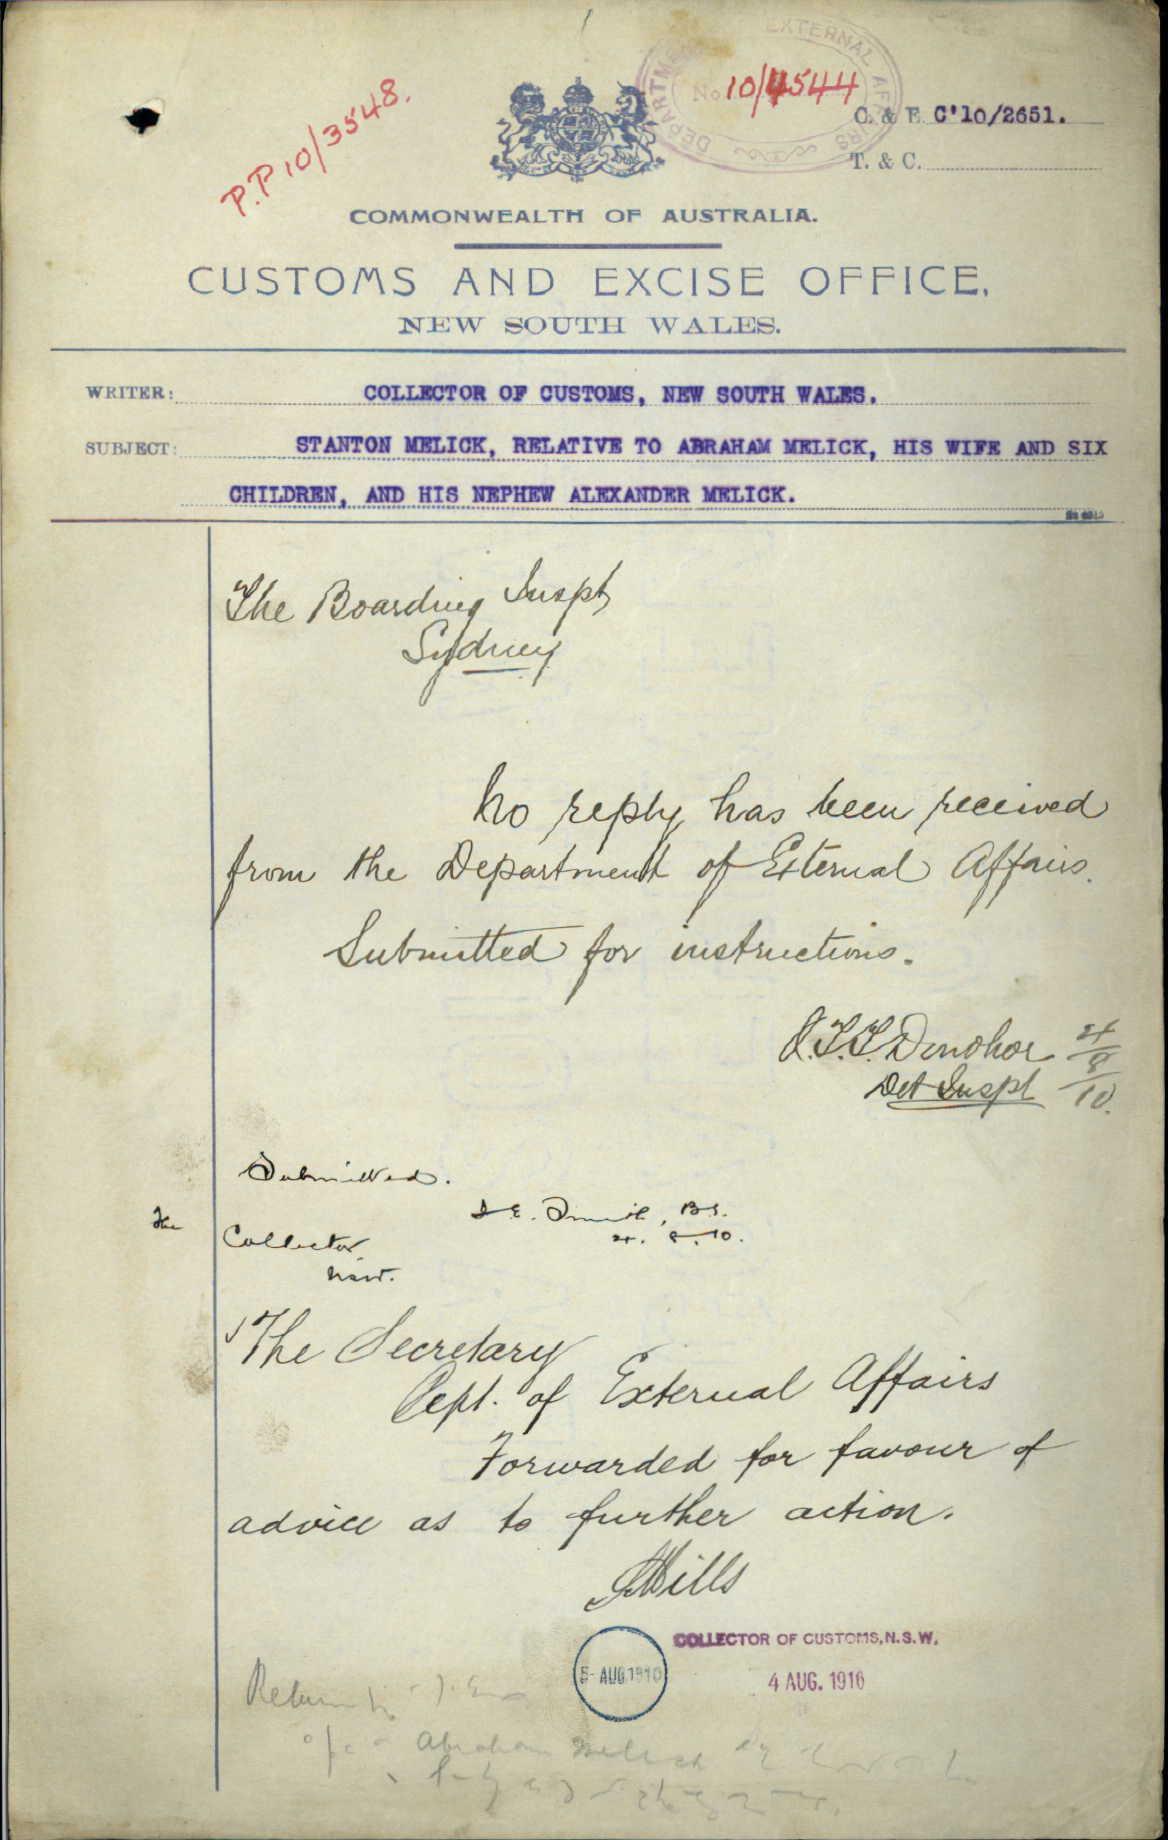 P.P 10/3548.
DEPARTMENT EXTERNAL AFFAIRS
No. 10/4544
C. & E. C'10/2651.
T. & C.
COMMONWEALTH OF AUSTRALIA.
CUSTOMS AND EXCISE OFFICE,
NEW SOUTH WALES.
WRITER: COLLECTOR OF CUSTOMS, NEW SOUTH WALES.
SUBJECT: STANTON MELICK, RELATIVE TO ABRAHAM MELICK, HIS WIFE AND SIX
CHILDREN, AND HIS NEPHEW ALEXANDER MELICK.
The Boarding Inspr
Sydney
No reply has been received
from the Department of External Affairs.
Submitted for instructions.
J.T.T. Donohoe 4/8/10.
Det Inspr
Submitted.
B.I.
4. 8. 10.
The Collector
NSW.
The Secretary
Dept. of External Affairs
Forwarded for favour of
advice as to further action.
Mills
COLLECTOR OF CUSTOMS, N.S.W.
5- AUG 1910
4 AUG. 1910
Return to
Abraham Melick